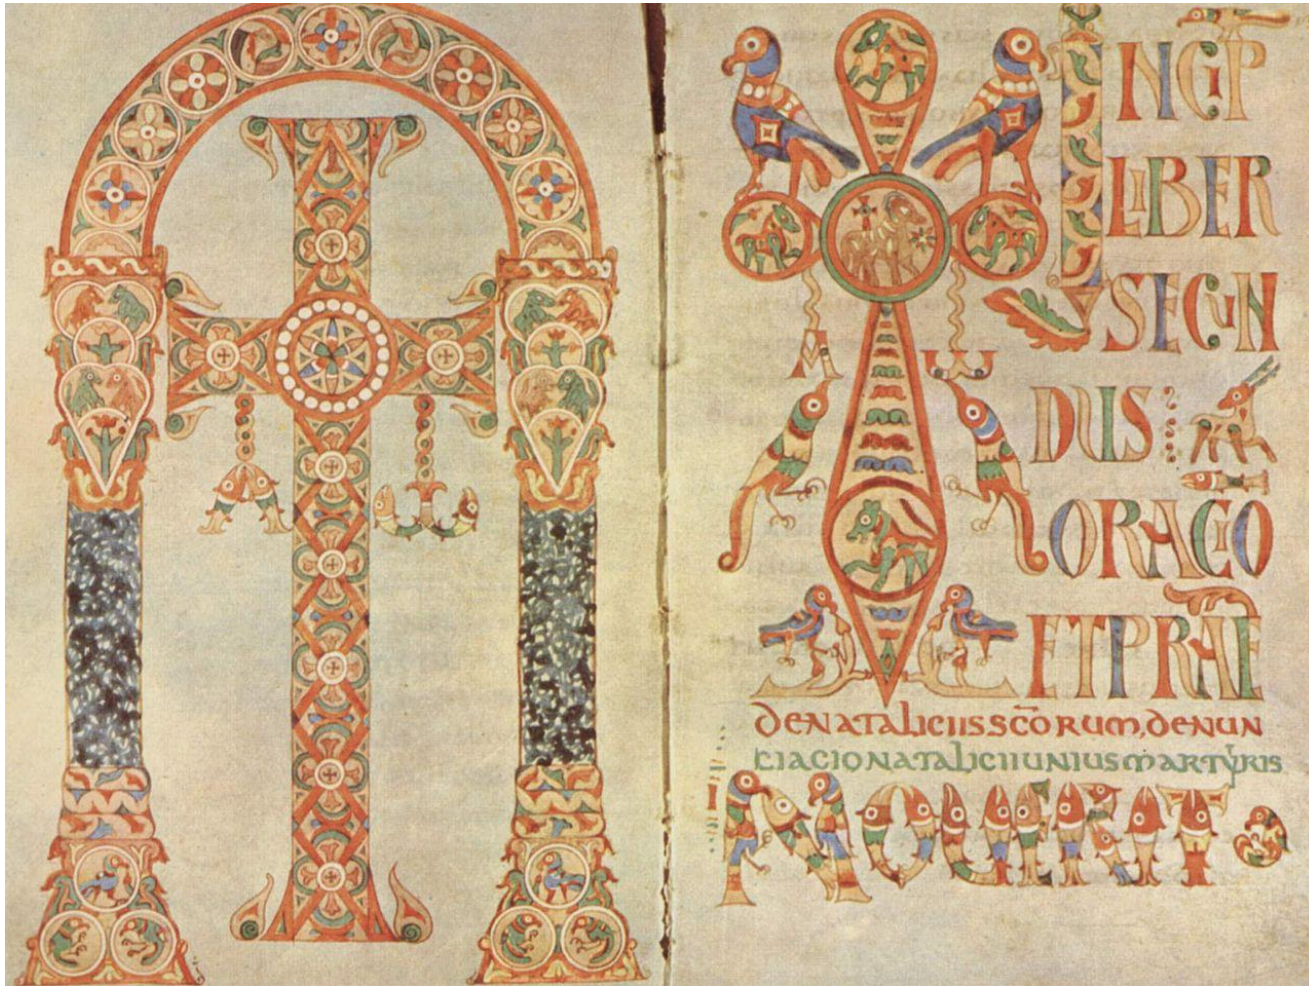 A Ω
A Ω
INCIP
LIBER
SECUN
DUS
ORACIO
ET PRAE
DE NATALICIIS SCORUM, DENUN
CIACIO NATALICII UNIUS MARTYRIS
NOUERIT